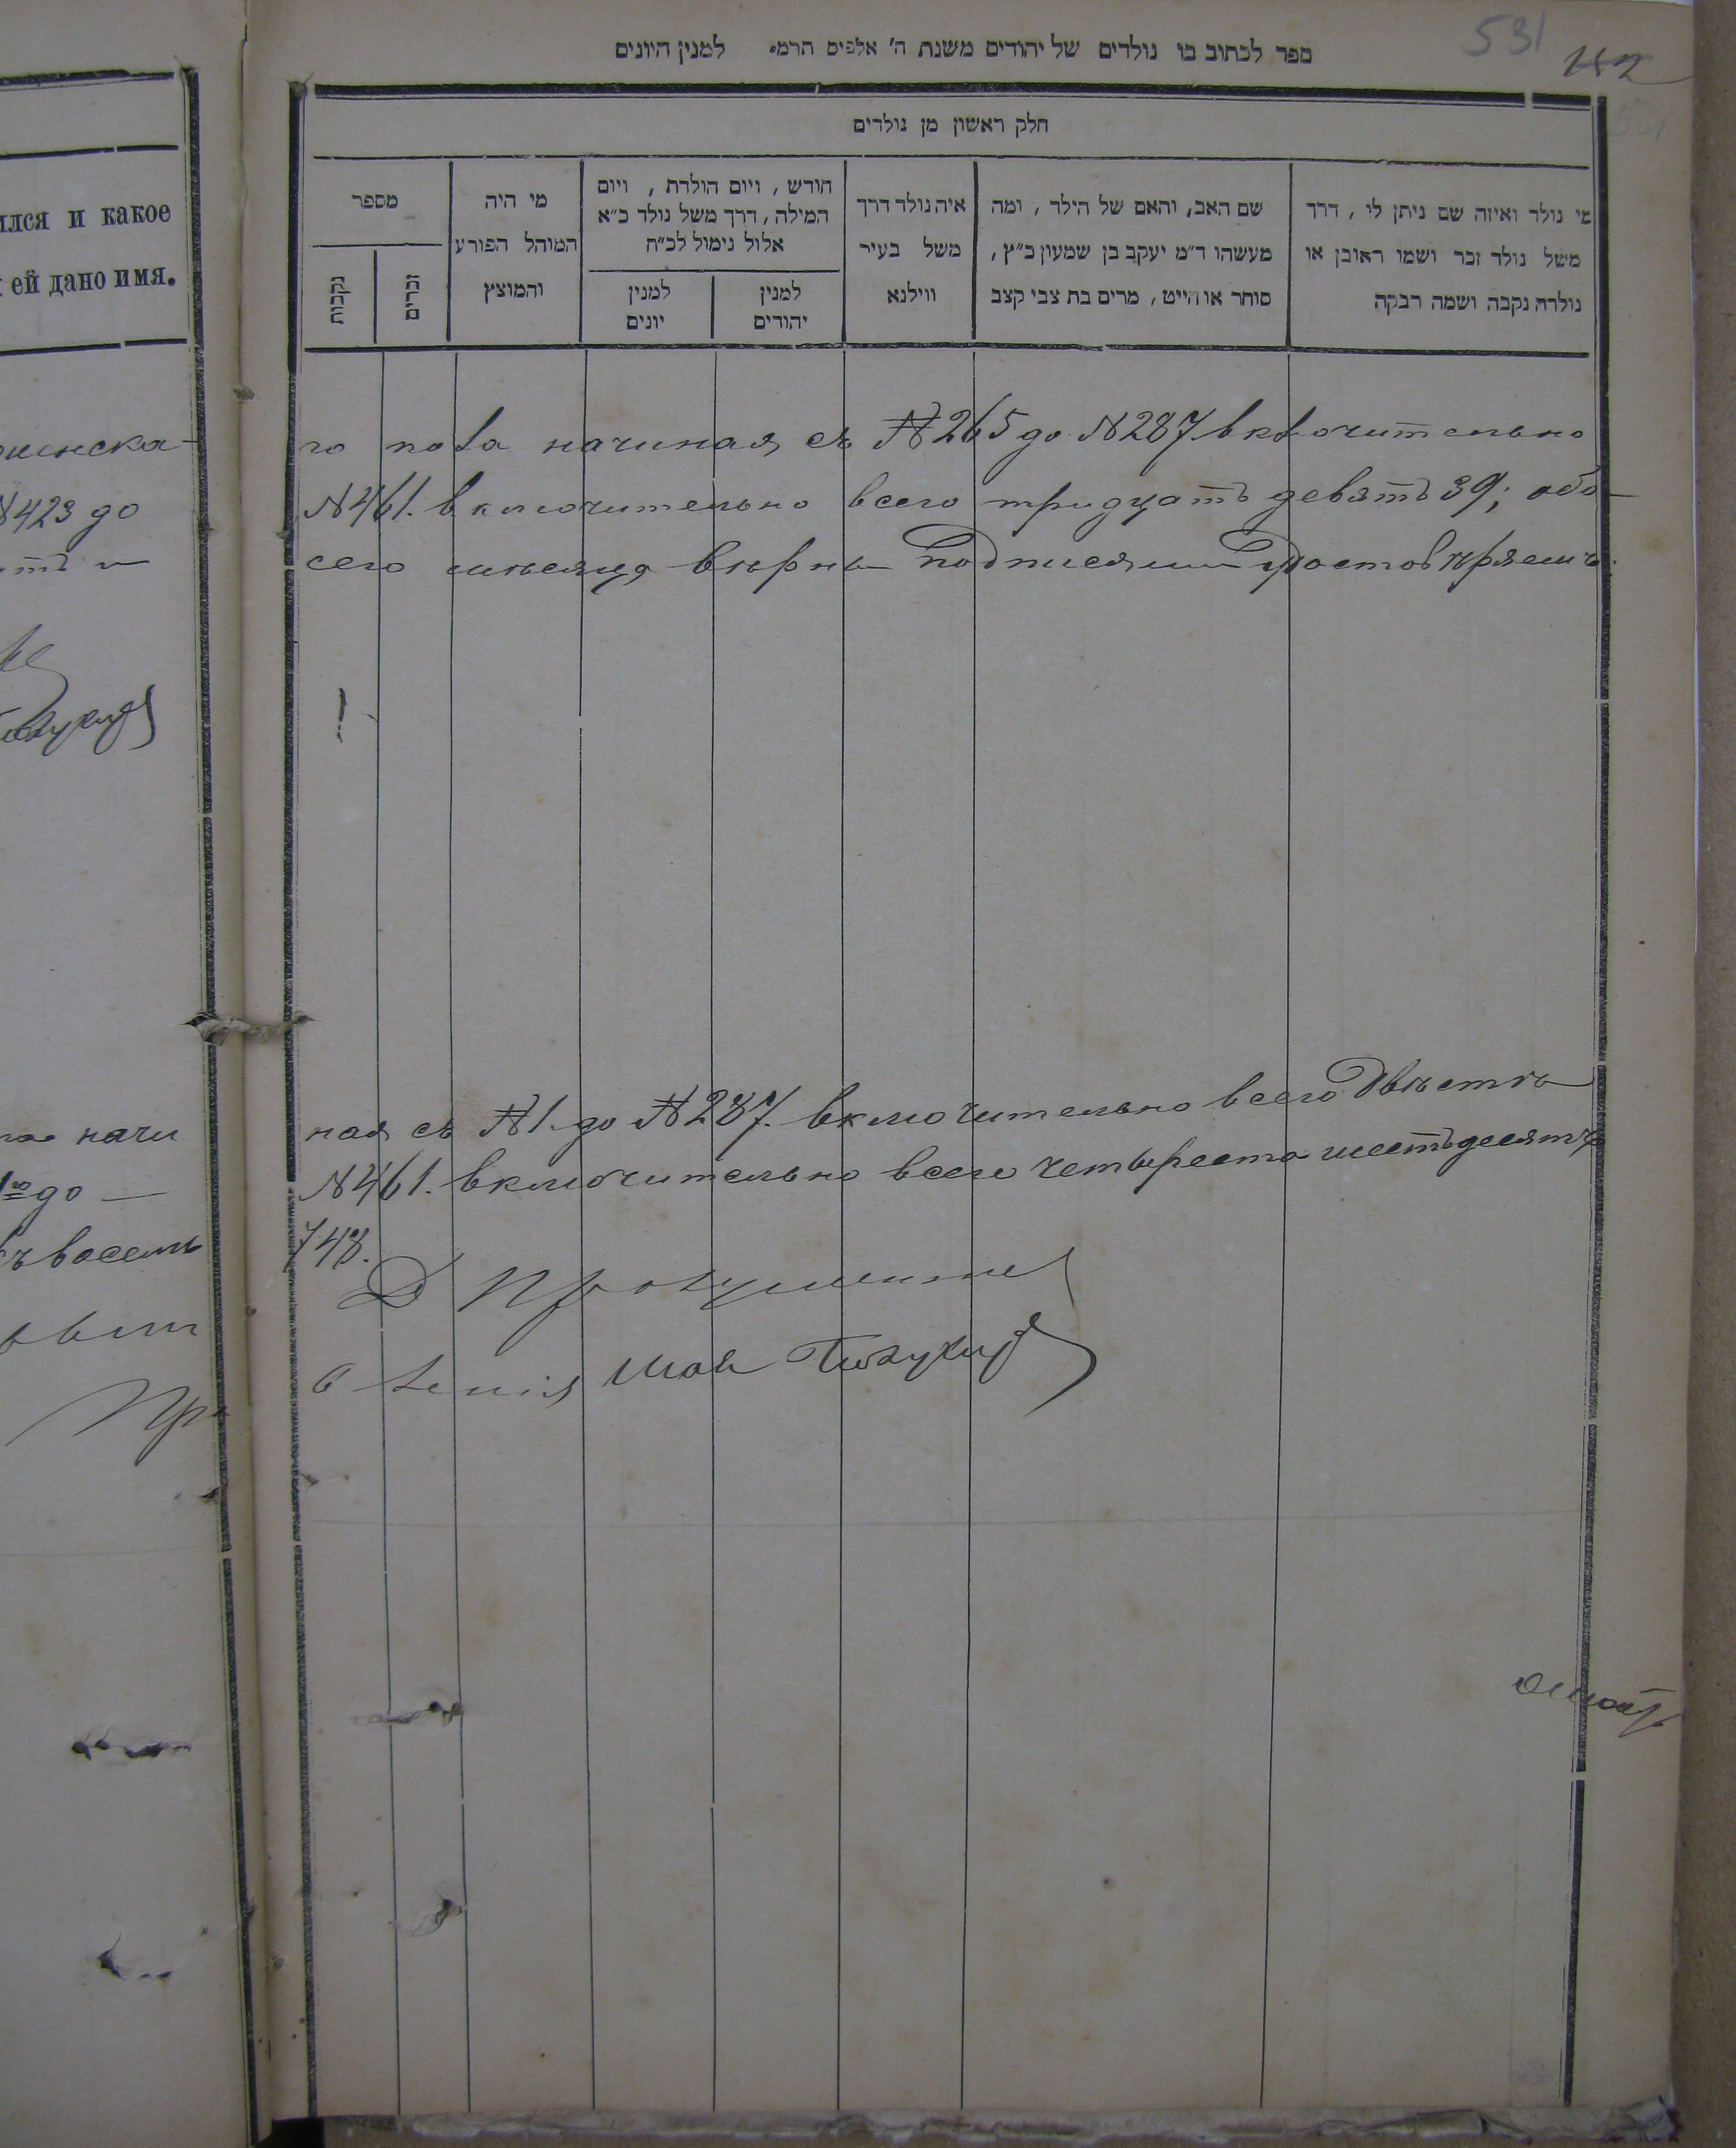 531
ספר לכתוב בו נולדים של יהודים משנת ה' אלפים תרמ למנין היונים
חלק ראשון מן נולדים
מספר
נקבות
זכרים
מי היה
המוהל הפורע
והמוצץ
חודש, ויום הולדת, ויום
המילה, דרך משל נולד כ״א
אלול נימול לכ״ח
למנין
יונים
למנין
יהודים
איה נולד דרך
משל בעיר
ווילנא
שם האב, והאם של הילד, ומה
מעשהו ד״מ יעקב בן שמעון כ״ץ,
סוחר או חייט, מרים בת צבי קצב
מי נולד ואיזה שם ניתן לו, דרך
משל נולד זכר ושמו ראובן או
נולדה נקבה ושמה רבקה
го пола начиная съ №265 до №287 включительно
№461. включительно всего тридцать девять 39; обо-
сего мѣсяца вѣрны подписями удостовѣряемъ.
ная съ №1. до №287. включительно всего Двѣсти
№461. включительно всего четыреста шестьдесятъ
748.
лся и какое
ей дано имя.
№423 до
начи
до —
восемь